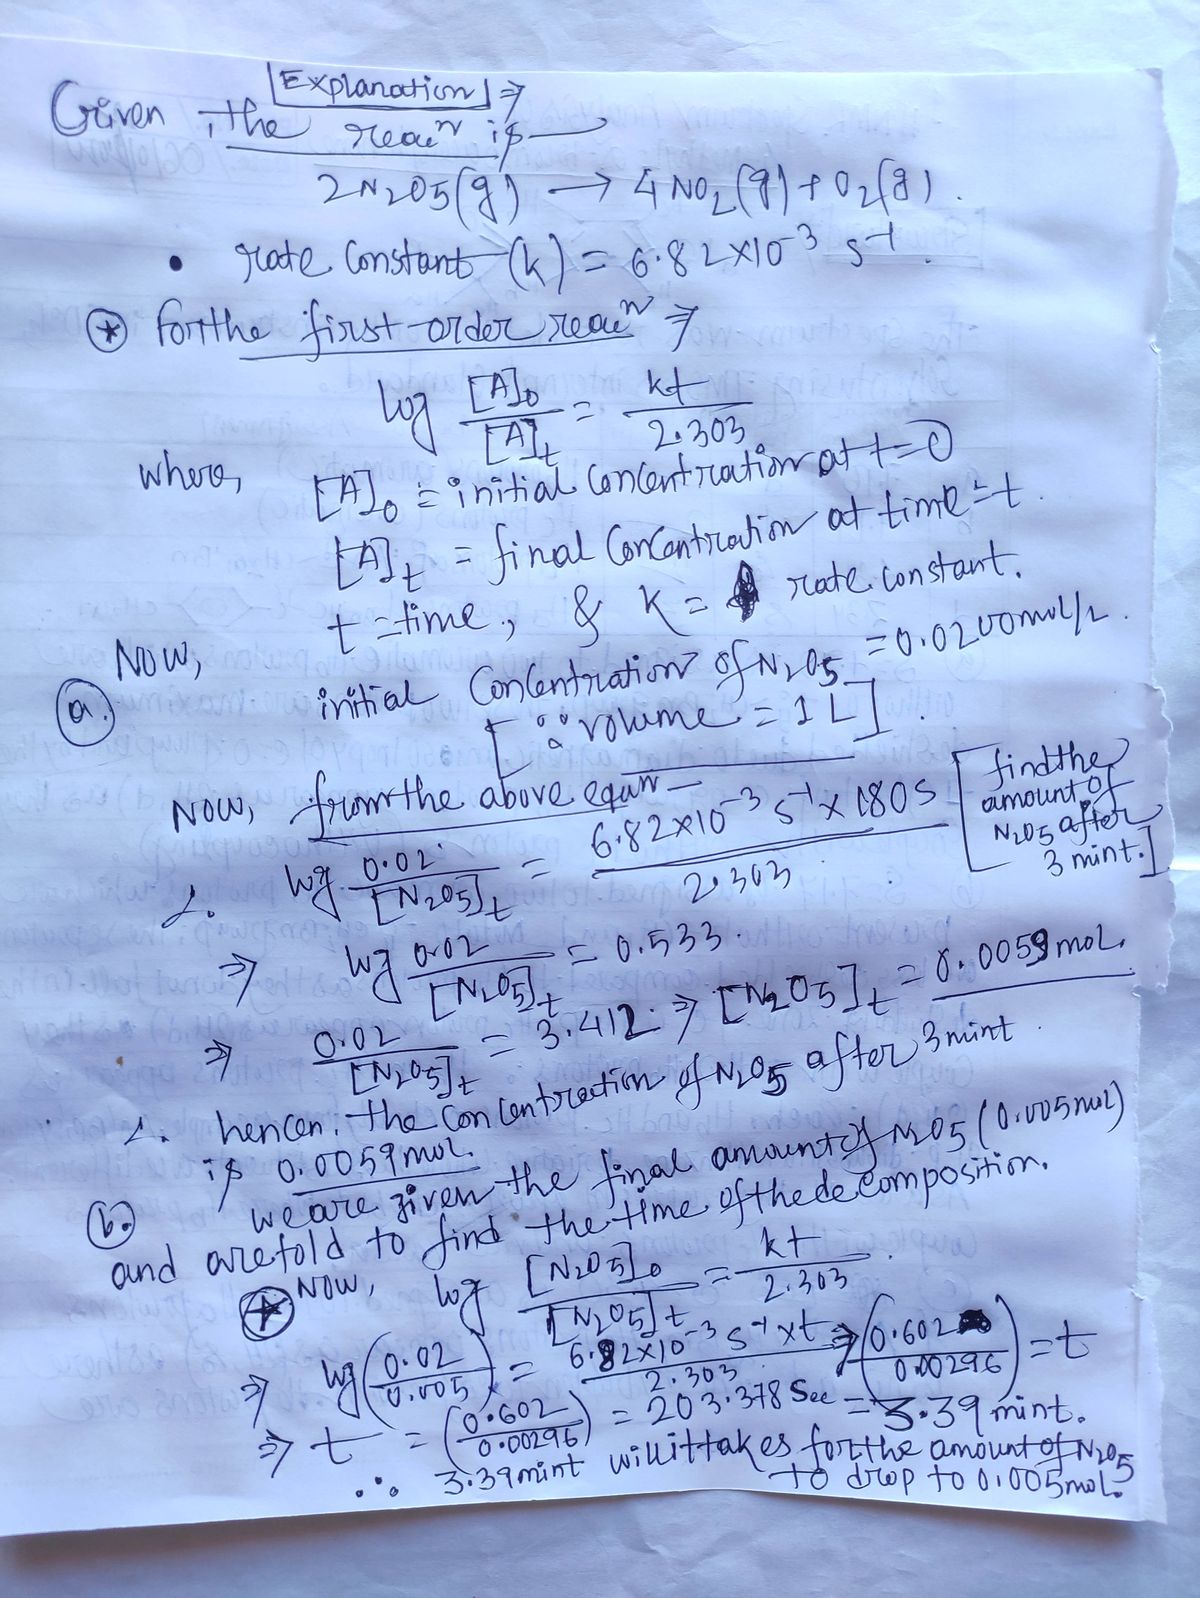 [Explanation] ⇒
Given, the reacⁿ is —
2N2O5(g) → 4NO2(g) + O2(g).
• rate Constant (k) = 6.82×10⁻³ s⁻¹.
⊛ For the first-order reacⁿ ⇒
log [A]₀/[A]t = kt/2.303
where, [A]₀ = initial Concentration at t=0
[A]t = final Concentration at time = t.
t = time, & k = rate constant.
Now,
(a.) initial Concentration of N2O5 = 0.0200mol/L.
[∵ volume = 1L].
Now, from the above equⁿ —
log 0.02/[N2O5]t = 6.82×10⁻³ s⁻¹ × 180s/2.303 [find the amount of N2O5 after 3 mint.]
⇒ log 0.02/[N2O5]t = 0.533.
⇒ 0.02/[N2O5]t = 3.412. ⇒ [N2O5]t = 0.0059 mol.
hencen. the Concentration of N2O5 after 3 mint.
is 0.0059 mol.
(b.) we are given the final amount of N2O5 (0.005 mol)
and are told to find the time of the decomposition.
⊛ Now, log [N2O5]₀/[N2O5]t = kt/2.303.
⇒ log(0.02/0.005) = 6.82×10⁻³ s⁻¹ × t/2.303 ⇒ (0.602/0.00296) = t
⇒ t = (0.602/0.00296) = 203.378 Sec = 3.39 mint.
∴ 3.39 mint will it takes for the amount of N2O5
to drop to 0.005 mol.